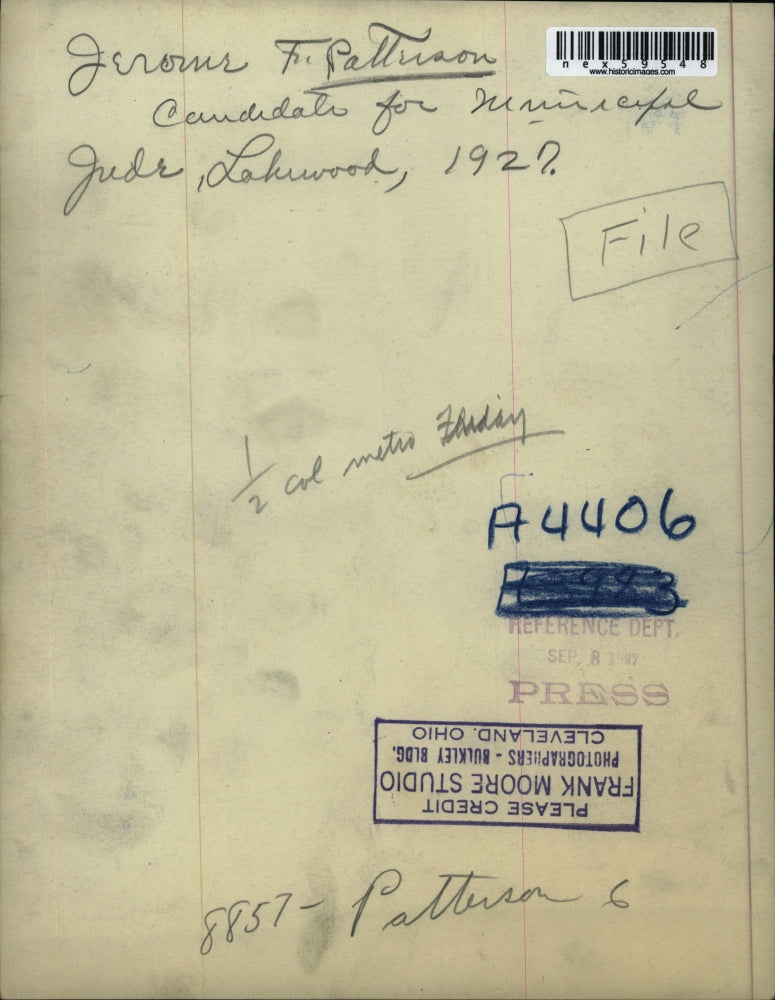 nex59548
www.historicimages.com
Jerome F. Patterson
Candidate for Municipal
Judr, Lakewood, 1927.
File
1/2 col metro Friday
A4406
REFERENCE DEPT.
SEP 8 1927
PRESS
PLEASE CREDIT
FRANK MOORE STUDIO
PHOTOGRAPHERS - BULKLEY BLDG.
CLEVELAND, OHIO
8857- Patterson 6